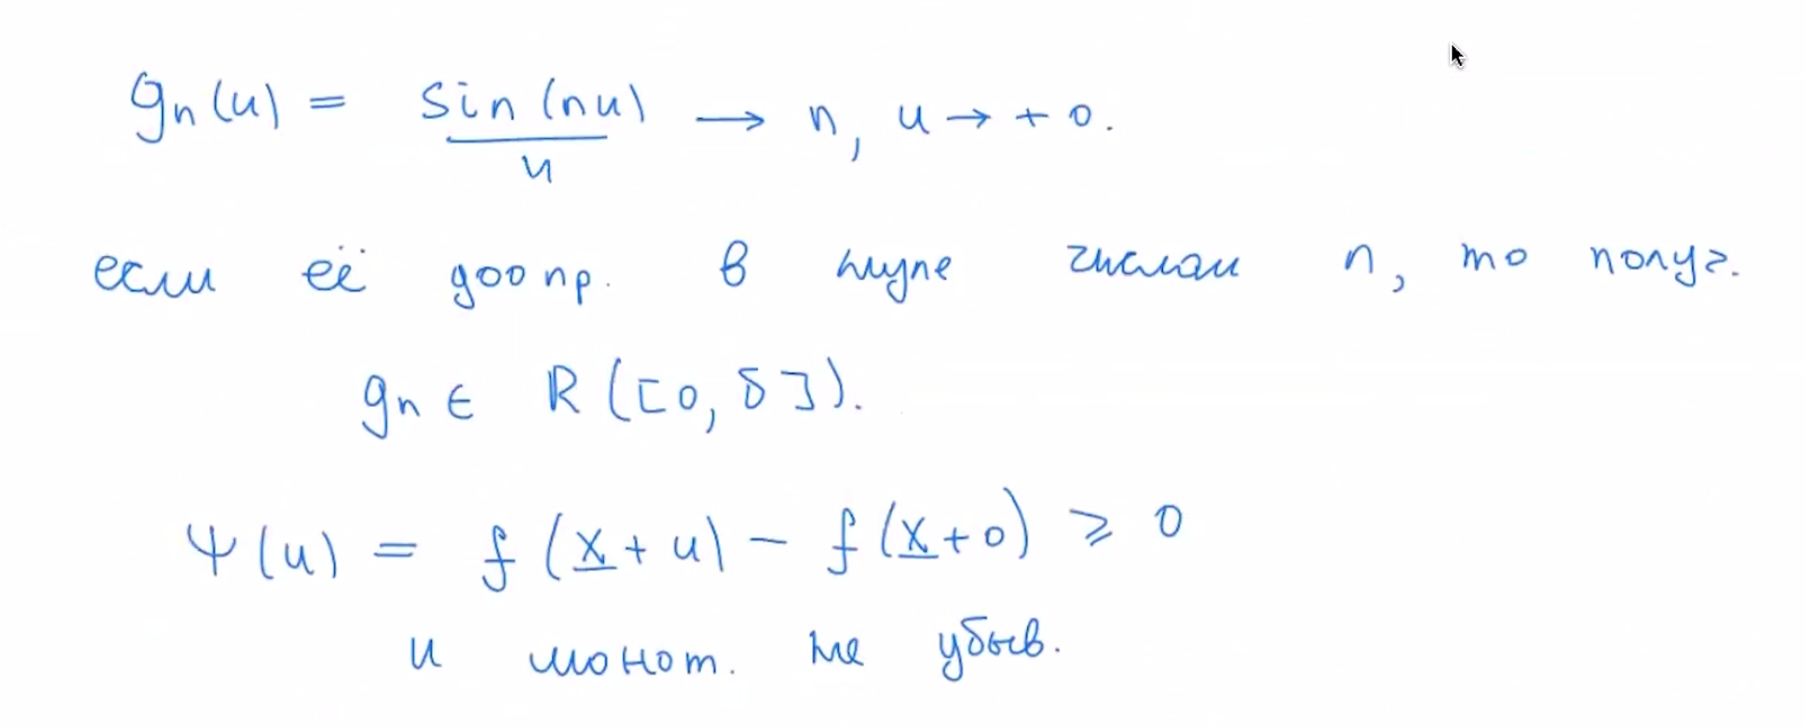 gn(u) = sin(nu)/u → n, u → +0.
если её доопр. в нуле числом n, то получ.
gn ∈ R([0, δ]).
Ψ(u) = f(x+u) - f(x+0) ⩾ 0
и монот. не убыв.